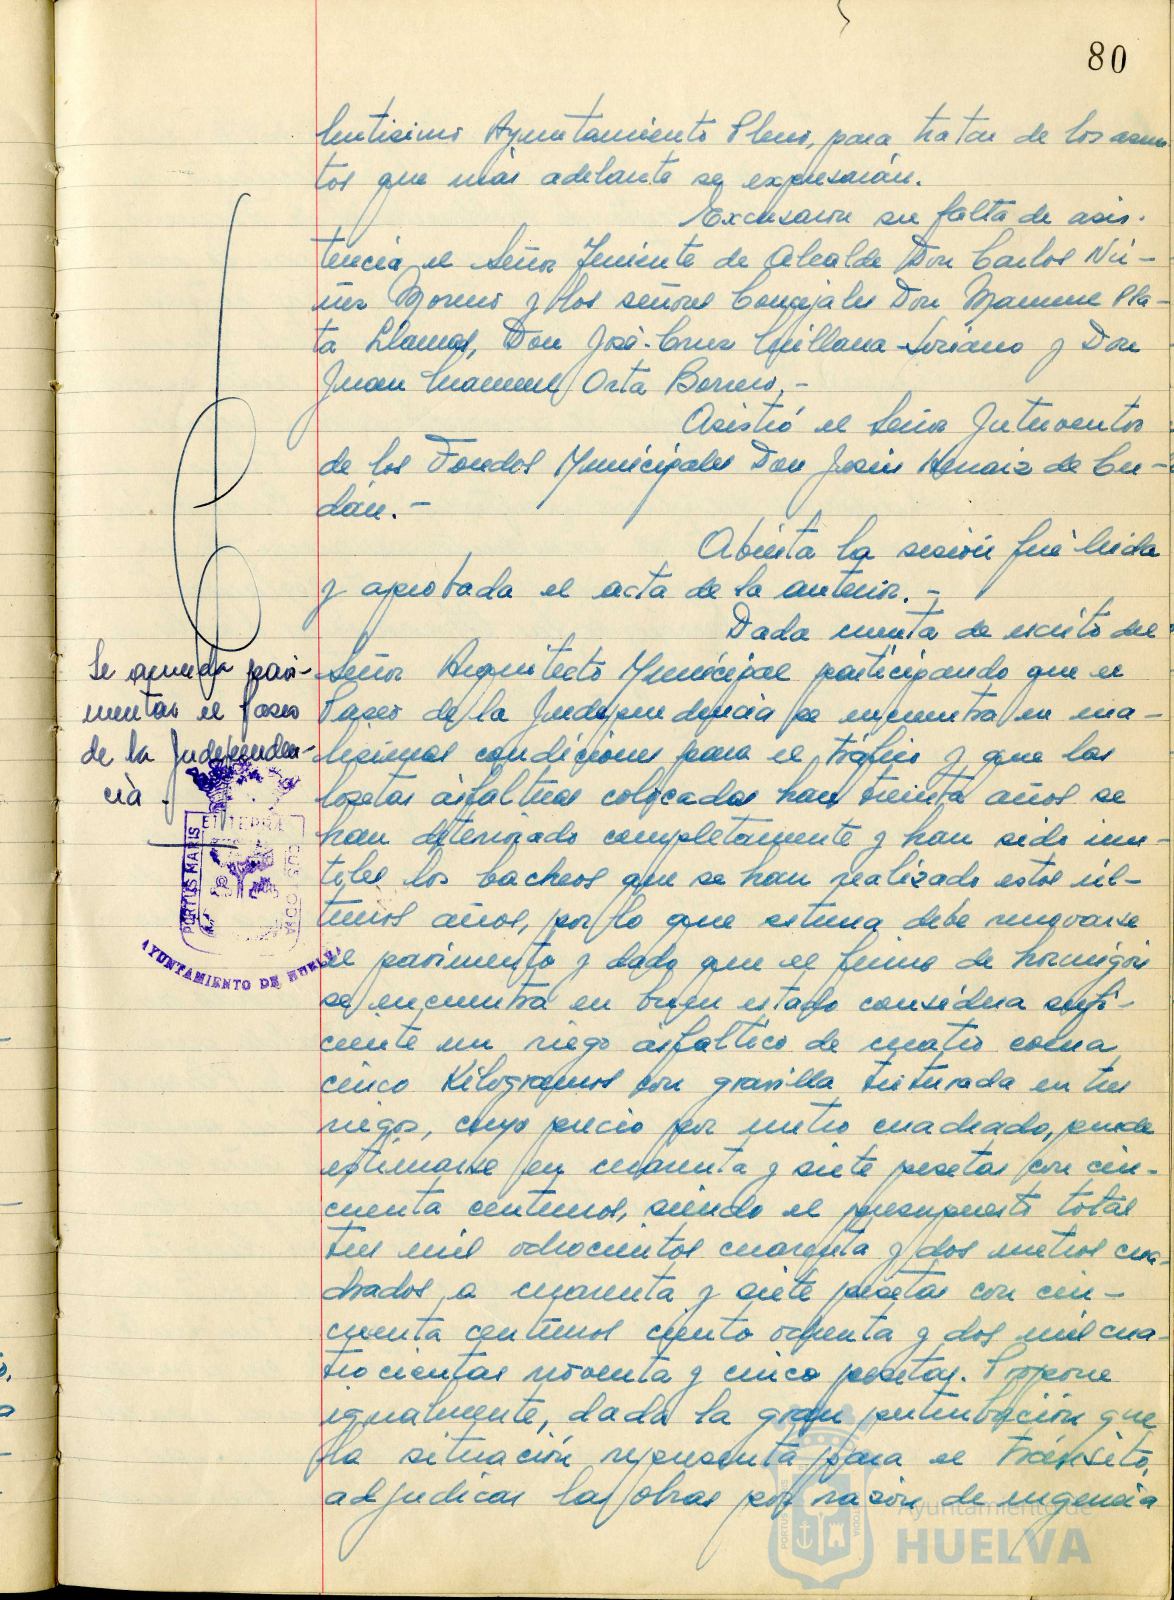 80
lentisimo Ayuntamiento Pleno, para tratar de los asun-
tos que más adelante se expresarán.
Excusaron su falta de asis-
tencia el Señor Teniente de Alcalde Don Carlos Nú-
ñez Moreno y los señores Concejales Don Manuel Pla-
ta Llamas, Don José-Cruz Quillana Soriano y Don
Juan Manuel Orta Borrero.-
Asistió el Señor Interventor
de los Fondos Municipales Don Jesús Arnaiz de Gu-
dán.-
Abierta la sesión fué leida
y aprobada el acta de la anterior.-
Dada cuenta de escrito del
Señor Arquitecto Municipal participando que el
Paseo de la Independencia se encuentra en ma-
lisimas condiciones para el tráfico y que las
losetas asfalticas colocadas han treinta años se
han deteriorado completamente y han sido inu-
tiles los bacheos que se han realizado estos úl-
timos años, por lo que estima debe renovarse
el pavimento y dado que el firme de hormigón
se encuentra en buen estado considera sufi-
ciente un riego asfaltico de cuatro coma
cinco Kilogramos con gravilla triturada en tres
riegos, cuyo precio por metro cuadrado, puede
estimarse en cuarenta y siete pesetas con cin-
cuenta centimos, siendo el presupuesto total
tres mil ochocientos cuarenta y dos metros cua-
drados a cuarenta y siete pesetas con cin-
cuenta centimos ciento ochenta y dos mil cua-
trocientas noventa y cinco pesetas. Propone
igualmente, dada la gran perturbación que
la situación representa para el tránsito,
adjudicar las obras por razón de urgencia
Se aprueba pavi-
mentar el Paseo
de la Independen-
cia.-
PORTUS MARIS
ET TERRÆ
CUSTODIA
AYUNTAMIENTO DE HUELVA
Ayuntamiento de
HUELVA